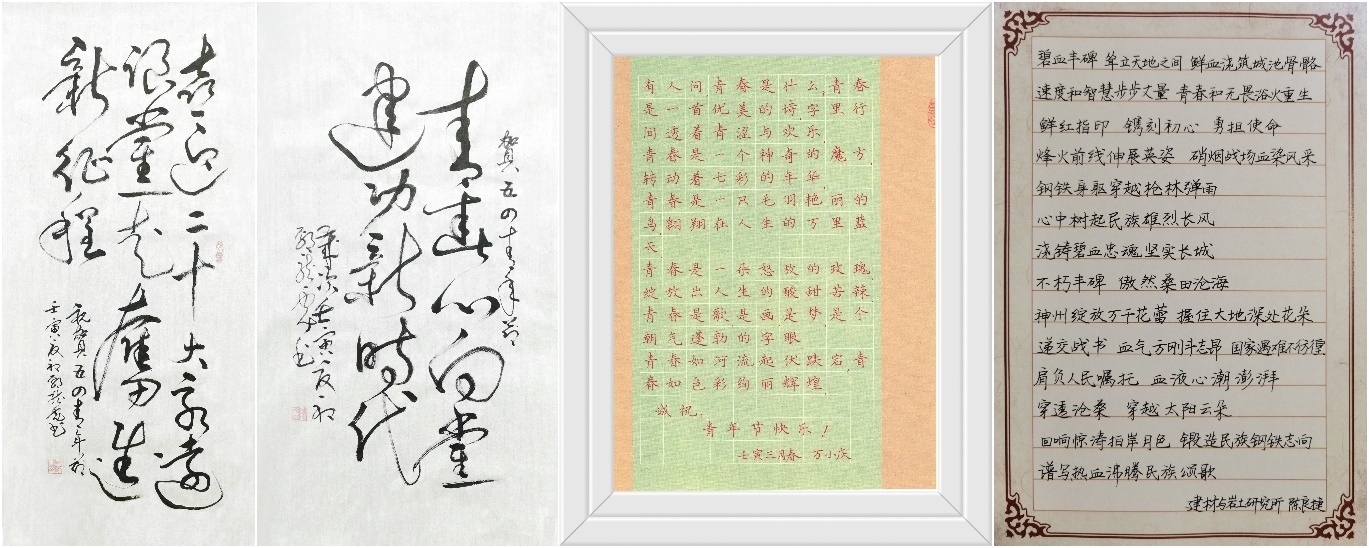 喜迎二十大永远
跟党走奋进
新征程
祝贺五の青年节
壬寅夏初
贺五の青年节
青春心向党
建功新时代
岁次壬寅夏初
有人问青春是什么,青春
是一首优美的诗字里行
间透着青涩与欢乐
青春是一个神奇的魔方
转动着七彩的年华
青春是一只毛羽艳丽的
鸟翱翔在人生的万里蓝
天
青春是一朵怒放的玫瑰
绽放出人生的酸甜苦辣
青春是歌是画是梦是个
朝气蓬勃的字眼
青春如河流起伏跌宕,青
春如色彩绚丽辉煌
诚祝,
青年节快乐!
壬寅三月春 万小庆
碧血丰碑 耸立天地之间 鲜血浇筑城池骨骼
速度和智慧步步丈量 青春和无畏浴火重生
鲜红指印 镌刻初心 勇担使命
烽火前线伸展英姿 硝烟战场血染风采
钢铁身躯穿越枪林弹雨
心中树起民族雄烈长风
浇铸碧血忠魂坚实长城
不朽丰碑 傲然桑田沧海
神州绽放万千花蕾 握住大地深处花朵
递交战书 血气方刚斗志昂 国家遇难不彷徨
肩负人民嘱托 血液心潮澎湃
穿透沧桑 穿越太阳云朵
回响惊涛拍岸月色 锻造民族钢铁志向
谱写热血沸腾民族颂歌
建材与岩土研究所 陈良捷